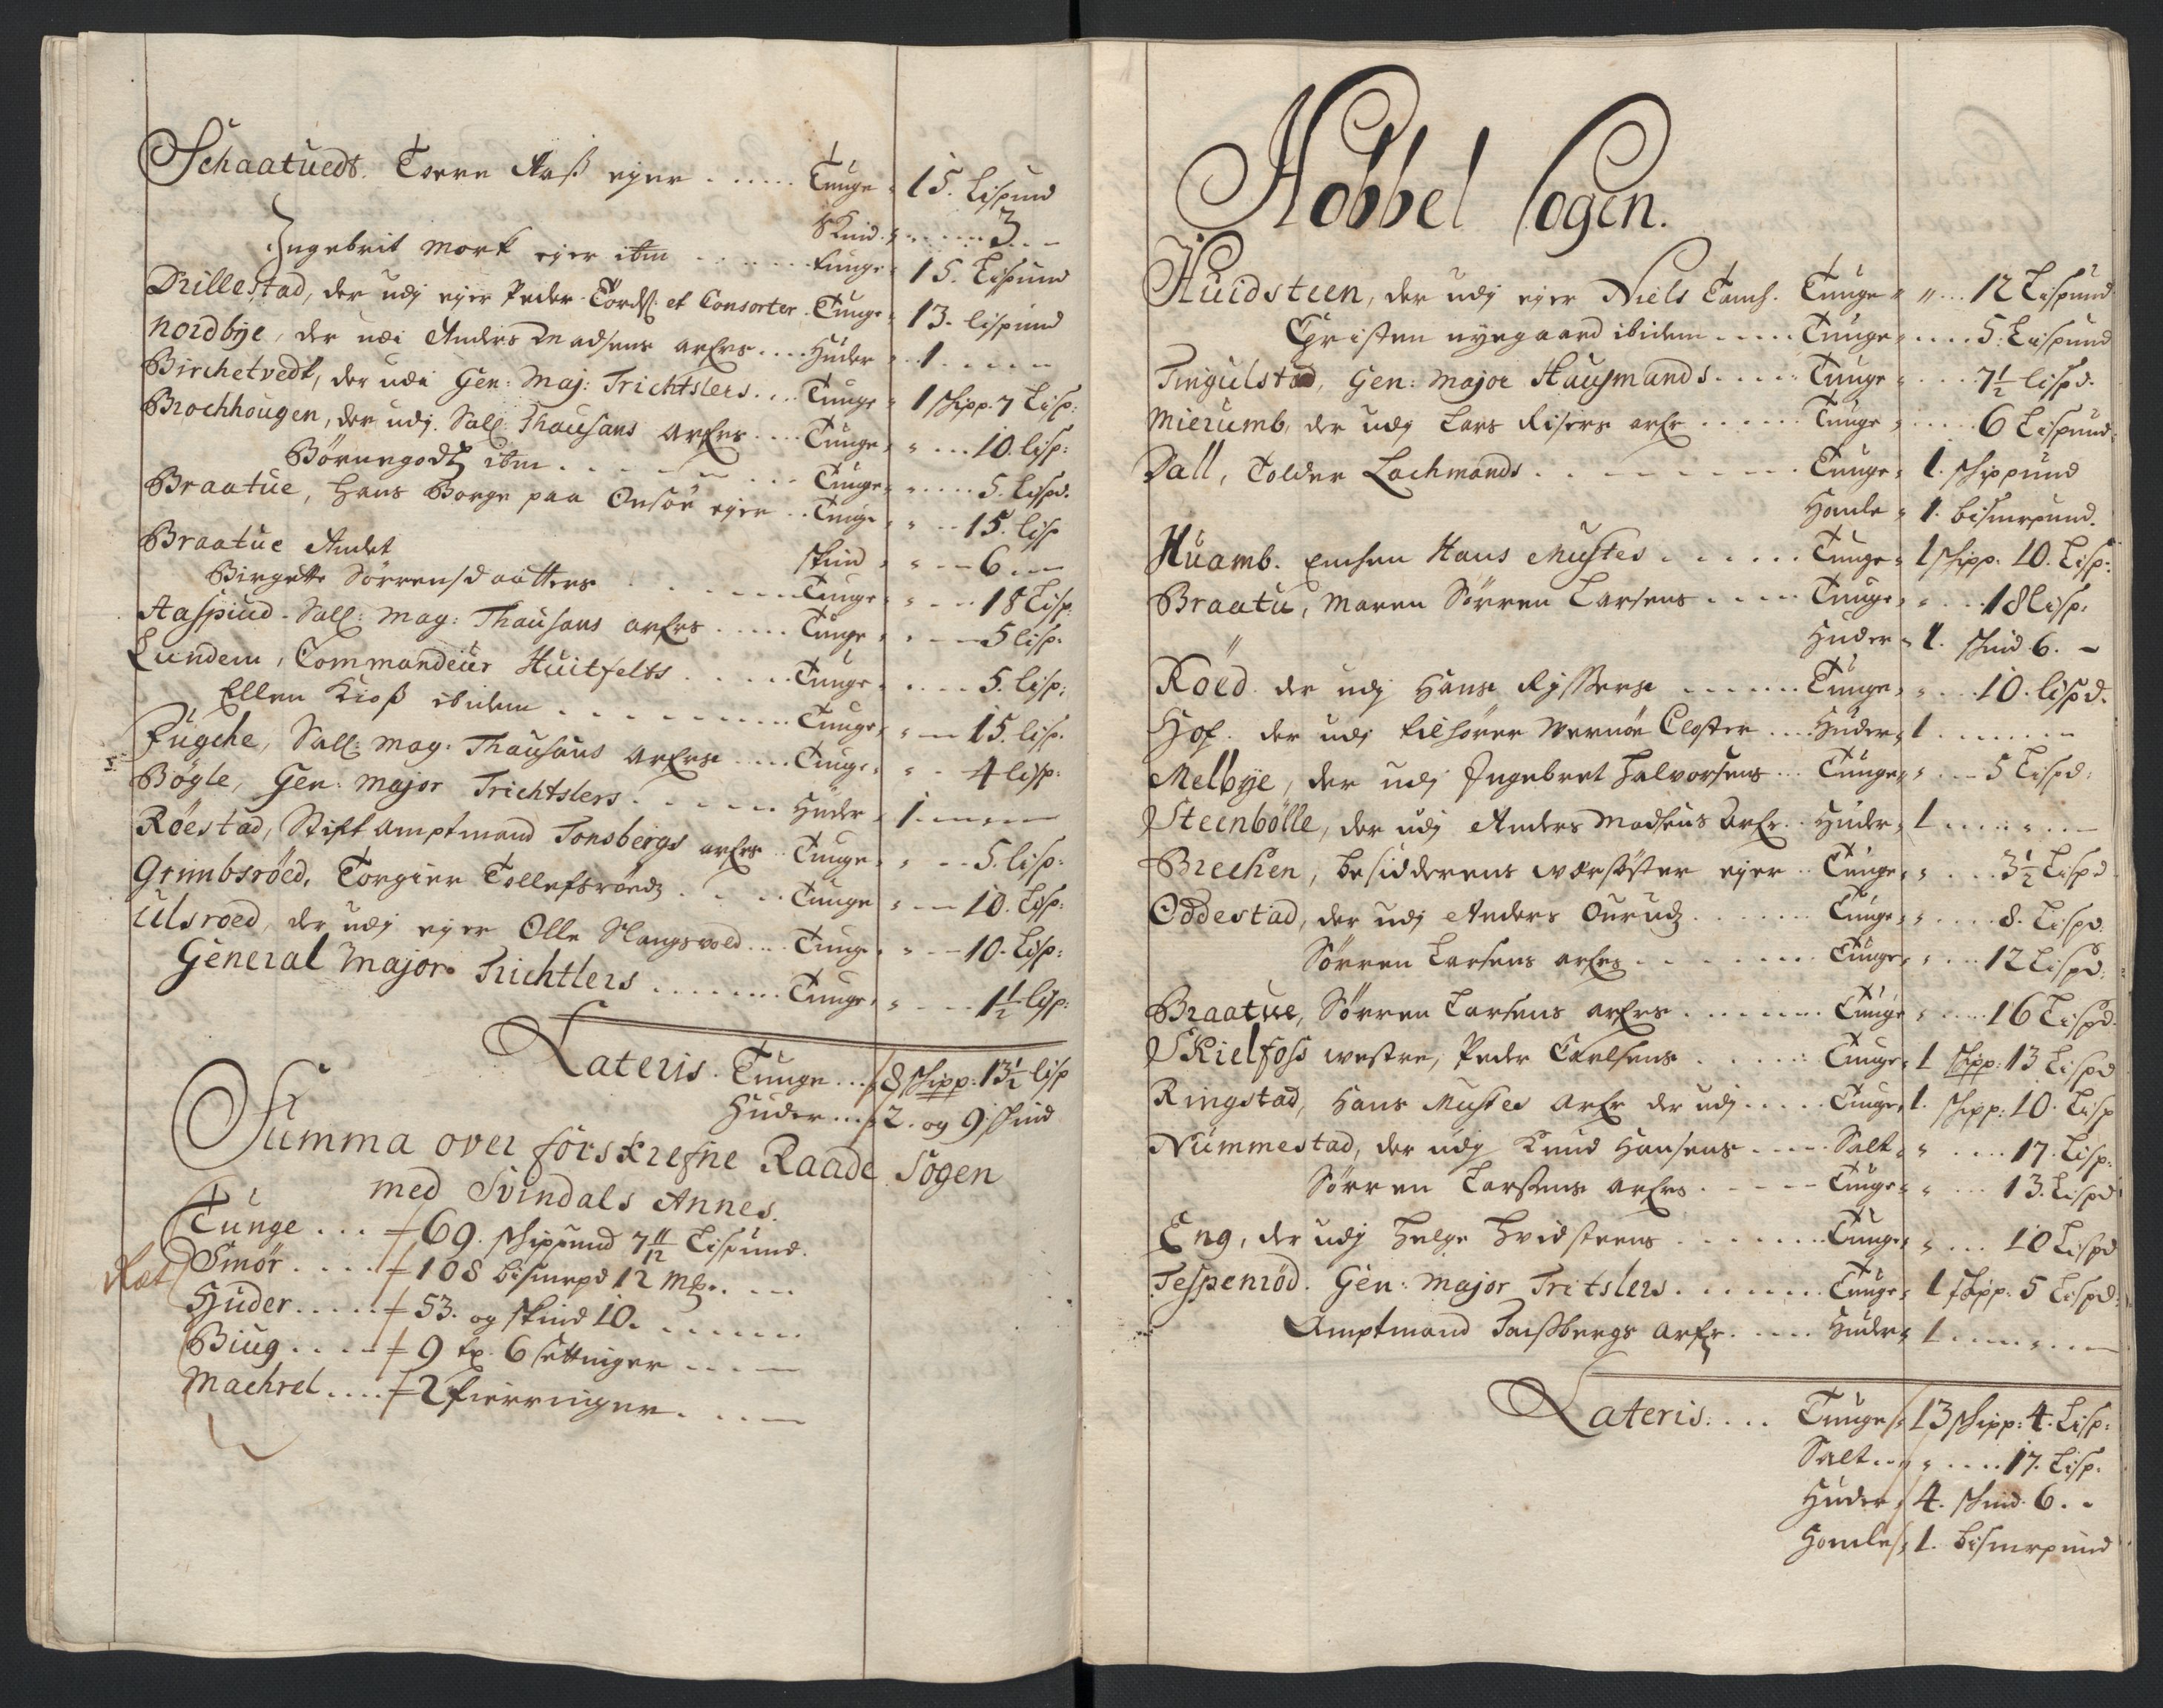 Schaatuedt. Torre Aaß eyer ...... Tunge = 15. Lispund
Skind = ...... 3 ..
Ingebrit Mork eyer itm ...... Tunge = 15. Lispund
Drillestad, der udj eyer Peder Tords: et Consorter. Tunge = 13. Lispund
Nordbye, der udi Anders Madsens arfvs .... Huder = 1 .....
Birchetvedt, der udi Gen: Maj: Trichtslers ... Tunge = 1 skipp. 7 Lisp:
Brochhougen, der udj. Sall: Thausans Arfvs .... Tunge = " ... 10. lisp:
Börnegodtz itm ...... Tunge = " .... 5. Lispd.
Braatue, Hans Borge paa Onsöe eyer .. Tunge = " ... 15. lisp
Skind = " - - 6 . -
Braatue Andet
Birgette Sörrensdaatters ...... Tunge = " ... 18 Lisp:
Aaspiud - Sall: Mag: Thausans arfvs ..... Tunge = " - - 5 lisp:
Lundem, Commandeür Huitfelts ..... Tunge = " .... 5. lisp:
Ellen Kioß ibidem ......... Tunge = " - - 15. lisp.
Fügche, Sall: Mag: Thausans Arfvse .... Tunge = " - - 4 lisp:
Bögle, Gen: Major Trichtslers ...... Huder = 1 .....
Röestad, Stift Amptmand Tonsbergs arfvs .. Tunge = " - - 5. lisp:
Grimbsröed, Torgier Tollefsröedz ..... Tunge = " - - 10. Lisp:
Ulsroed, der udj eyer Olle Slangsvold ... Tunge = " - - 10. Lisp:
General Major Trichtlers ........ Tunge = " - - - 1 1/2 lisp:
Lateris. Tunge ... 8 skipp: 13 1/2 lisp
Huder ... 2. og 9 skind
Summa over forskrefne Raade Sogen
med Svindals Annex.
Tunge ... 69. skippund 7 11/12 Lispund.
Smör .... 108 bismrpd 12 mk. ...
Huder ..... 53. og skind 10. ......
Biug .... 9 tr. 6 settinger ....
Machrel .... 2 fierringer ....
Hobbel Sogen.
Huidsteen, der udj eyer Niels Tams. Tunge = " ... 12 Lispund
Christen nyegaard ibidem ..... Tunge = .... 5. Lispund
Tingulstad, Gen: Major Hausmands .... Tunge = ... 7 1/2 lispd.
Mierumb, der udj Lars Risers arfv ...... Tunge = .... 6 Lispund
Dall, Tolder Lachmands ........ Tunge = 1. skippund
Homle = 1. bismrpund.
Huamb. Enchen Hans Mustes ...... Tunge = 1 skipp. 10. Lisp:
Braatu, Maren Sörren Larsens .... Tunge = " ... 18 lisp.
Huder = 1. skind 6. -
Röed. der udj Hans Ryssers ...... Tunge = " ... 10. lispd.
Hof. der udj tilhører Wernöe Closter ... Huder = 1 .......
Melbye, der udj Ingebret Halvorsens ... Tunge = " .... 5 Lispd:
Steenbölle, der udj Anders Madsens Arfv .. Huder = 1 .......
Brechen, besidderens værsöster eyer .. Tunge = " ... 3 1/2 Lispd
Oddestad, der udj Anders Ourudz ...... Tunge = " .... 8. Lispd.
Sörren Larsens arfvs ........ Tunge = " ... 12 Lispd:
Braatue, Sörren Larsens Arfvs ....... Tunge = " .... 16 Lispd.
Skielfoss westre, Peder Carlsens ..... Tunge = 1 skipp: 13 Lispd
Ringstad, Hans Mustes Arfv der udj ..... Tunge = 1. skipp: 10. Lisp
Nummestad, der udj Knud Hansens .... Salt = " .... 17. Lisp:
Sörren Larsens Arfvs ..... Tunge = " ... 13. Lispd
Eng, der udj Helge Hvidsteens ....... Tunge = " ... 10 Lispd
Tespenröd. Gen: Major Tritslers ....... Tunge = 1 skipp: 5 Lispd:
Amptmand Tonsbergs Arfv ..... Huder = 1 .......
Lateris .... Tunge = 13 skipp: 4. Lisp:
Salt ... " .... 17. Lisp.
Huder = 4. skind 6. -
Homle = 1. bismrpund